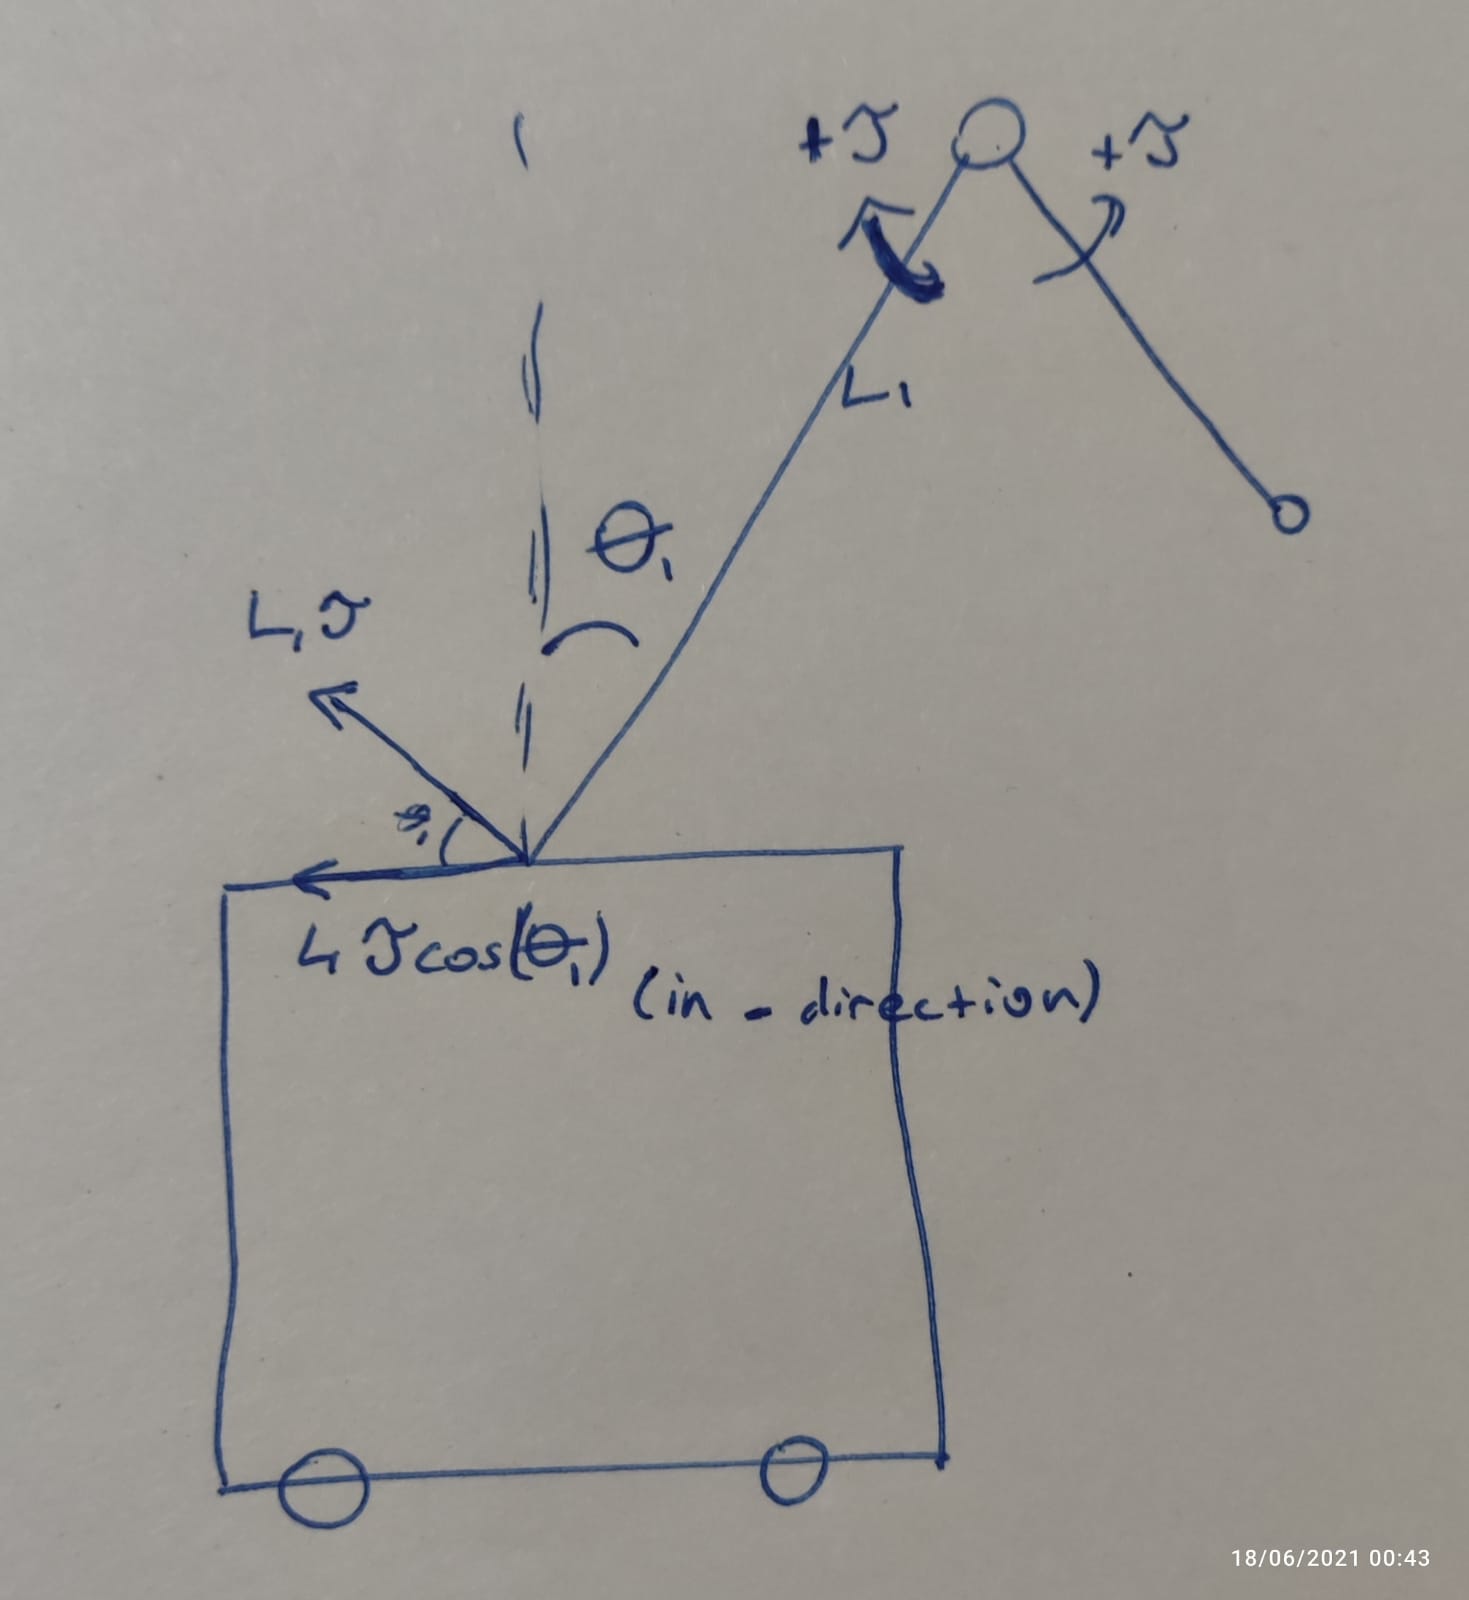 +τ
+τ
L1
θ1
L1τ
θ1
L1τcos(θ1)
(in - direction)
18/06/2021 00:43